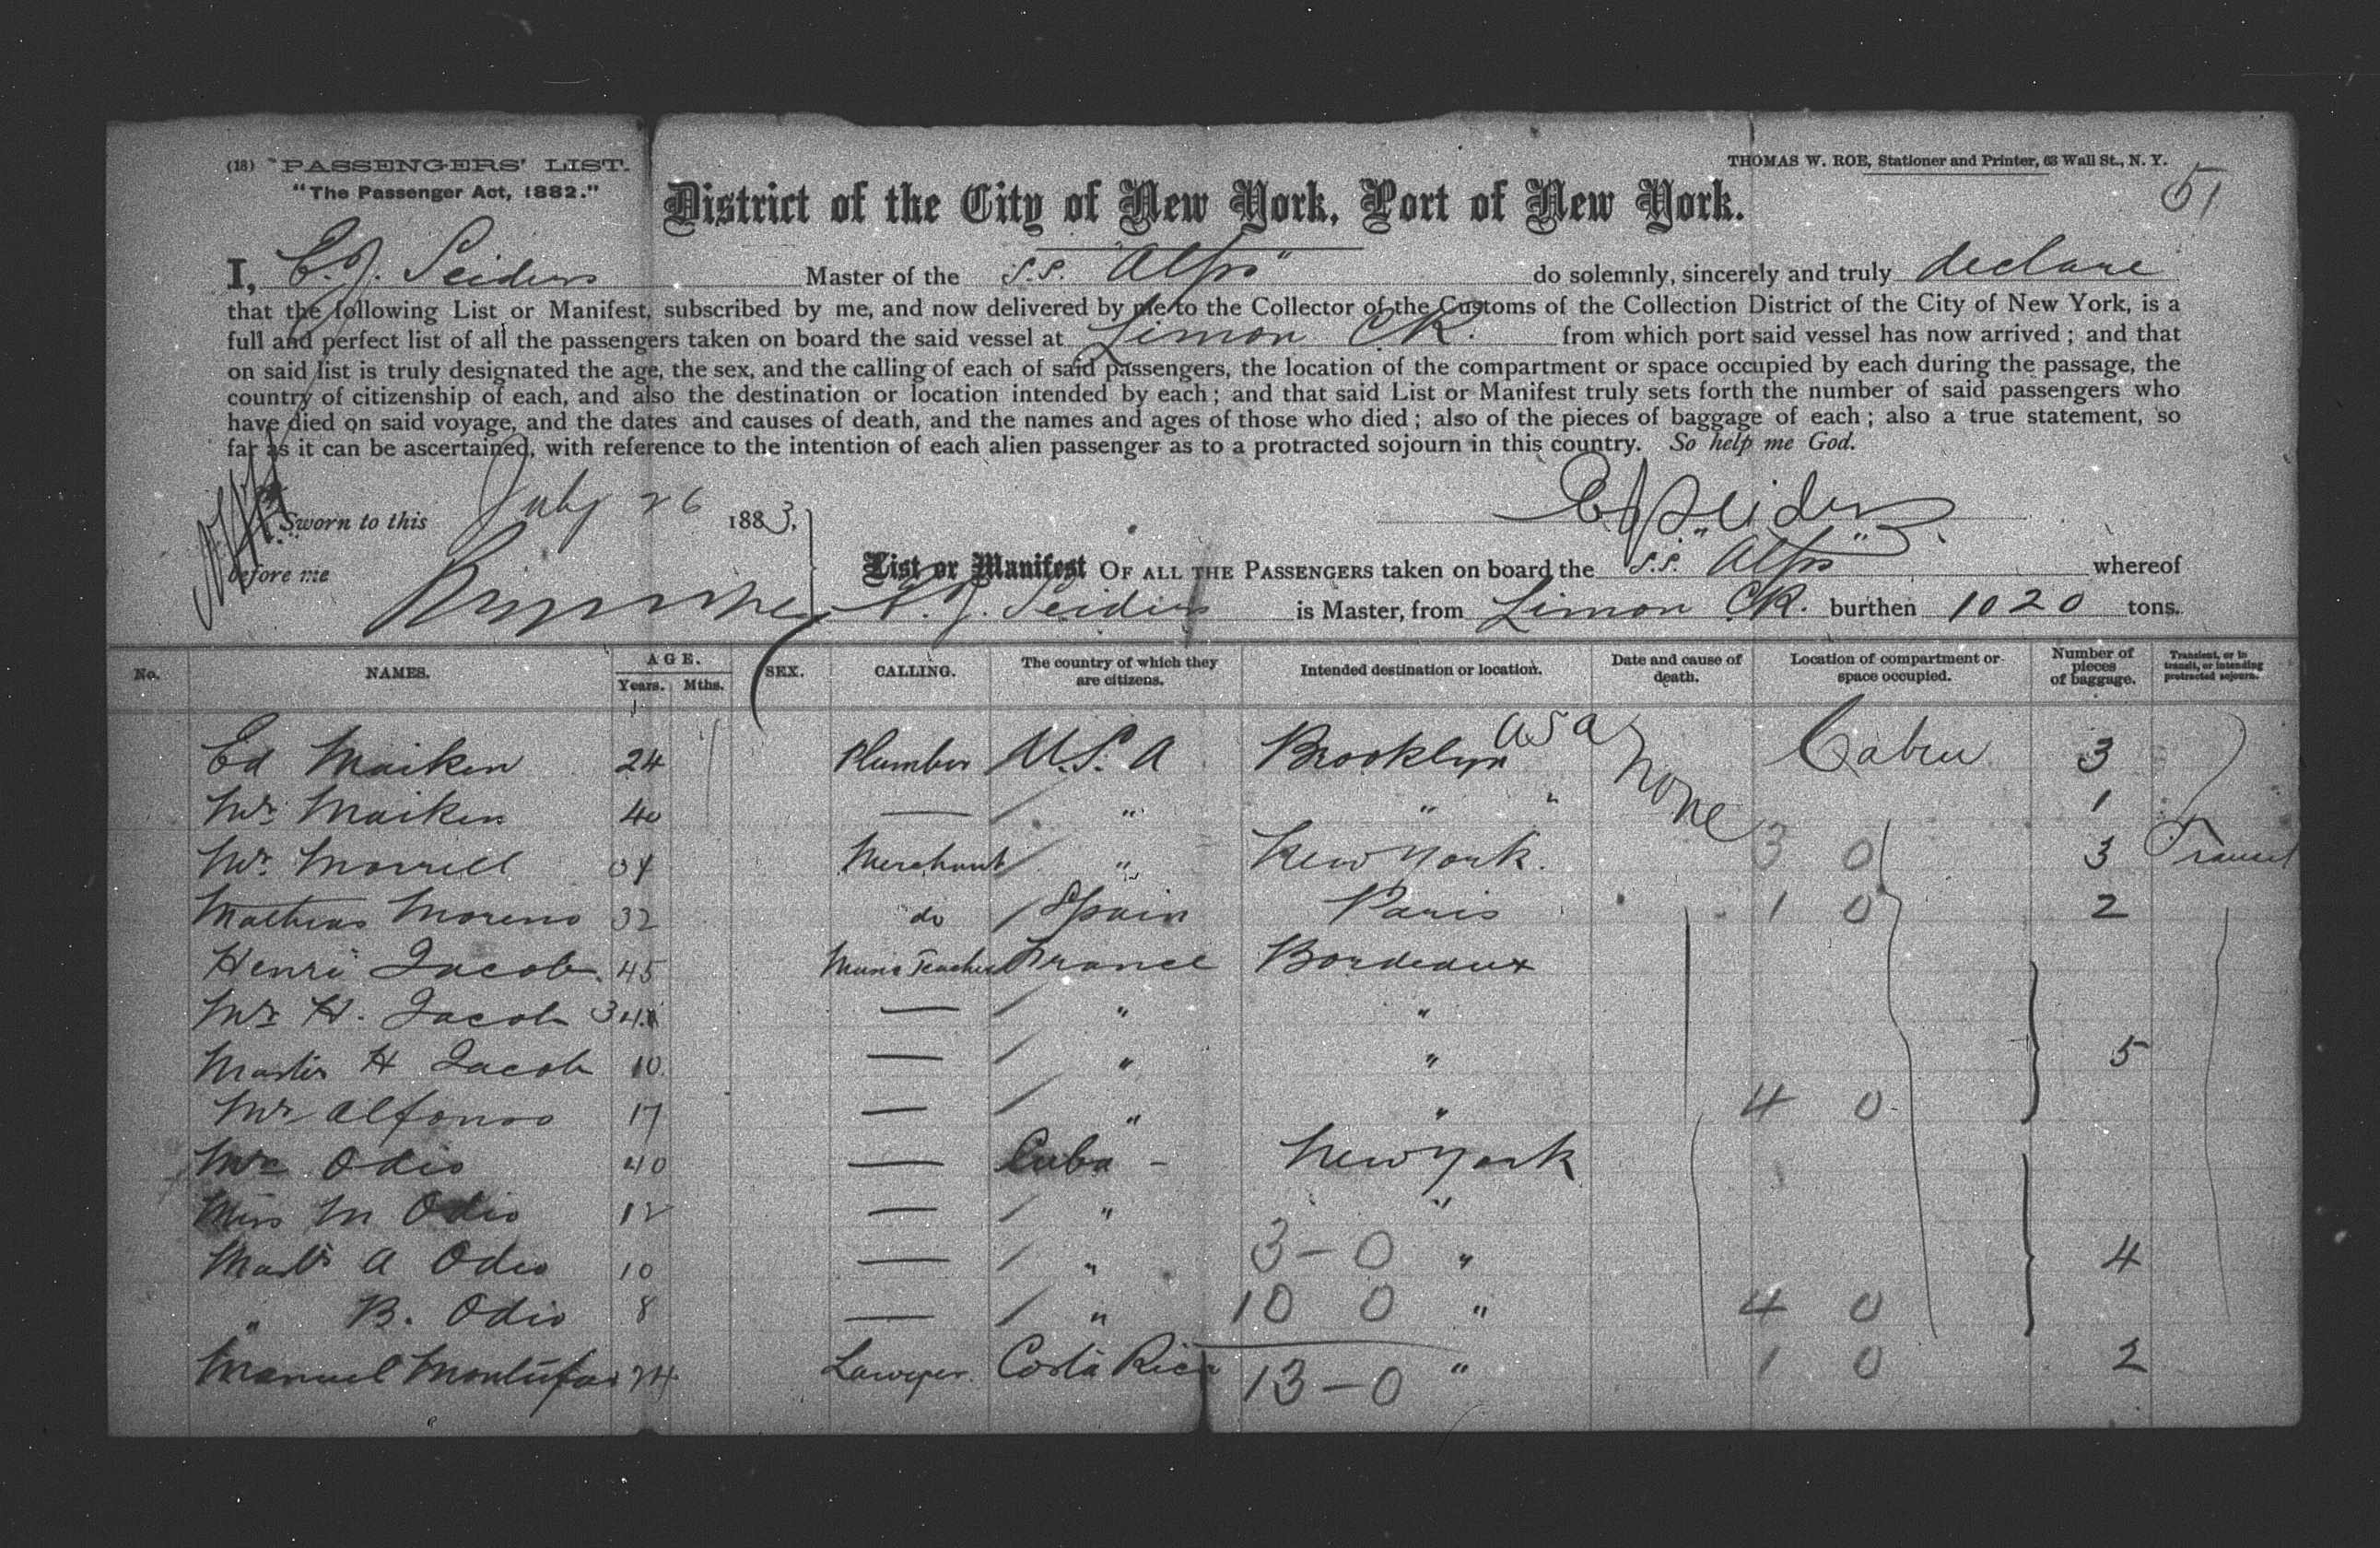 (18) "PASSENGERS' LIST.
"The Passenger Act, 1882."
THOMAS W. ROE, Stationer and Printer, 63 Wall St., N. Y.
51
District of the City of New York, Port of New York.
I, E. J. Seiders Master of the S.S. "Alps" do solemnly, sincerely and truly declare
that the following List or Manifest, subscribed by me, and now delivered by me to the Collector of the Customs of the Collection District of the City of New York, is a
full and perfect list of all the passengers taken on board the said vessel at Limon C.R. from which port said vessel has now arrived; and that
on said list is truly designated the age, the sex, and the calling of each of said passengers, the location of the compartment or space occupied by each during the passage, the
country of citizenship of each, and also the destination or location intended by each; and that said List or Manifest truly sets forth the number of said passengers who
have died on said voyage, and the dates and causes of death, and the names and ages of those who died; also of the pieces of baggage of each; also a true statement, so
far as it can be ascertained, with reference to the intention of each alien passenger as to a protracted sojourn in this country. So help me God.
Sworn to this July 26 1883. E J Seiders
before me
List or Manifest OF ALL THE PASSENGERS taken on board the S.S. "Alps" whereof
E. J. Seiders is Master, from Limon C.R. burthen 1020 tons.
No. NAMES. AGE. Years. Mths. SEX. CALLING. The country of which they are citizens. Intended destination or location. Date and cause of death. Location of compartment or space occupied. Number of pieces of baggage. Transient, or in transit, or intending protracted sojourn.
Ed Maiken 24 Plumber U.S.A Brooklyn USA None Cabin 3
Mrs Maiken 40 — " " " 1
Mr Morrell 34 Merchant " New York. 3 0 3 Transit
Mathias Moreno 32 do Spain Paris 1 0 2
Henri Jacob 45 Music Teacher France Bordeaux
Mrs H. Jacob 34 — " "
Master H Jacob 10 — " " 5
Mr Alfonso 17 — " " 4 0
Odio 40 — Cuba - New York
Miss M Odio 12 — " "
Mastr A Odio 10 — " 3-0 " 4
" B. Odio 8 — " 10 0 " 4 0
Manuel Montúfar 24 Lawyer Costa Rica 13-0 " 1 0 2